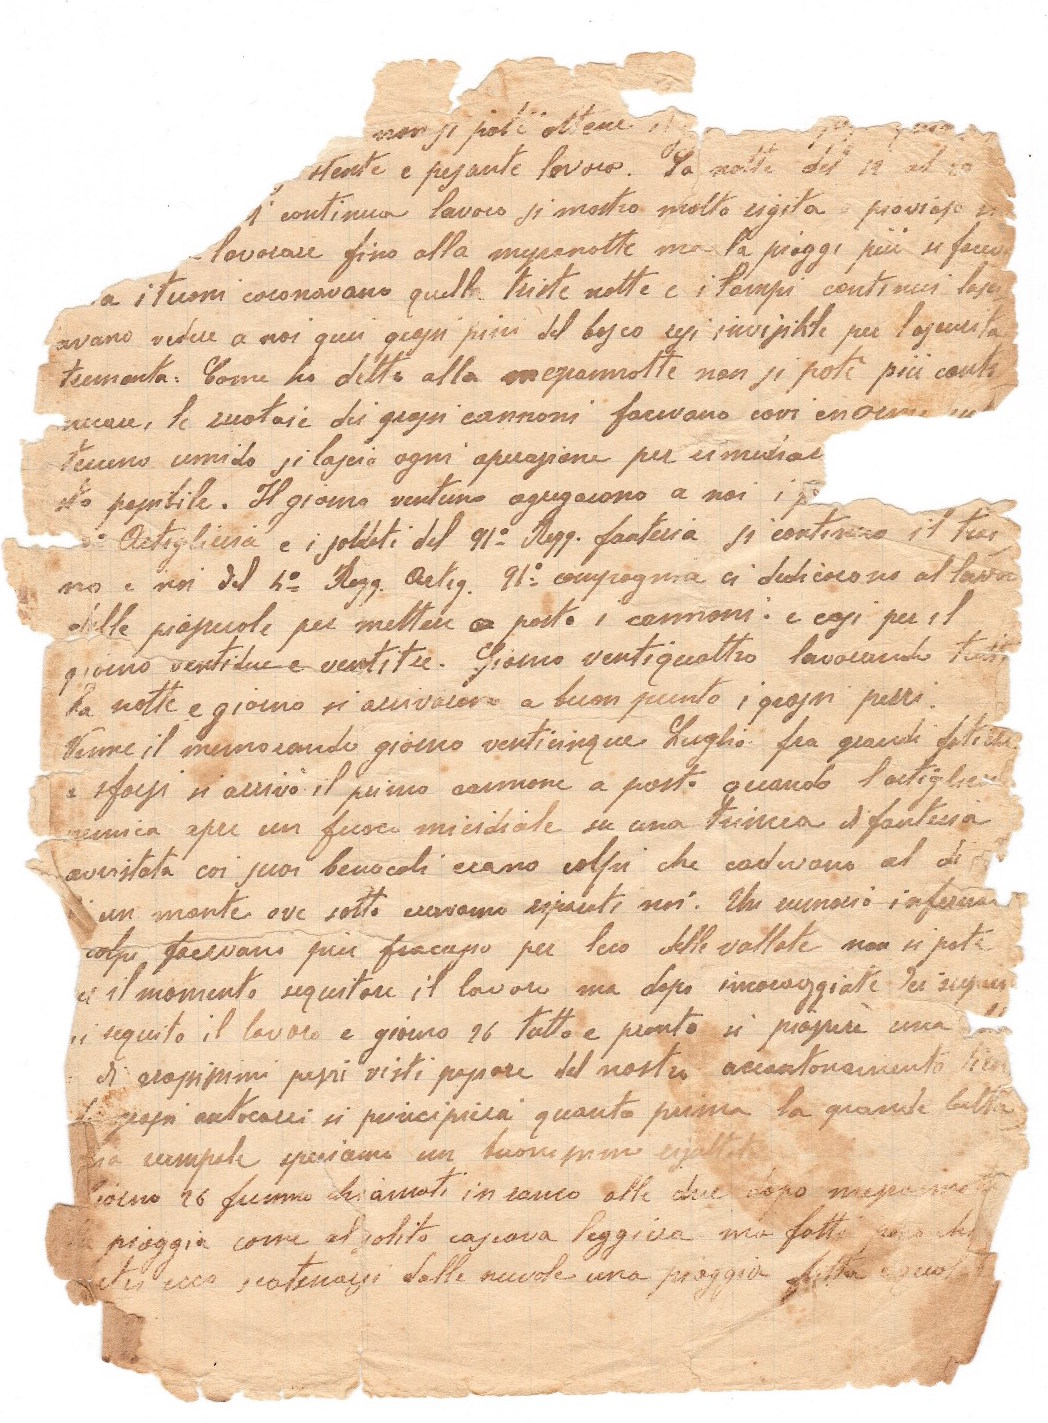 non si potè ottene
stente e pesante lavoro. La notte del 19 al 20
continua lavoro si mostro molto rigita e pioviosa
lavorare fino alla mezzanotte ma la pioggi più si facev
a i tuoni coronavano quella triste notte e i lampi continui lasci
avano vedere a noi quei grossi pini del bosco resi invisibile per l'oscurita
tremanta. Come ho detto alla mezzannotte non si potè più conti
nuare, le ruotaie dei grossi cannoni facevano covi enormi sul
terreno umido si lascio ogni operazione per rimediar
sto possibile. Il giorno ventuno agregarono a noi i
Artiglieria e i soldati del 91° Regg. fanteria si continuo il trai
no e noi del 4° Regg. Artig. 91° compagnia ci dedicarono al lavor
delle piazzuole per mettere a posto i cannoni. e così per il
giorno ventidue e ventitre. Giorno ventiquattro lavorando tutta
la notte e giorno si arrivarono a buon punto i grossi pezzi.
Venne il memorando giorno venticinque Luglio fra grandi fatiche
e sforsi si arrivò il primo cannone a posto quando l'artiglieria
nemica apre un fuoco micidiale su una trincea di fanteria
avvistata coi suoi benocoli erano colpi che cadevano al di
di un monte ove sotto eravamo riparati noi. Un rumorio infernal
colpi facevano più fracasso per leco delle vallate non si pote
il momento seguitare il lavoro ma dopo incoraggiate
si seguito il lavoro e giorno 26 tutto e pronto si piazzerè una
di grossissimi pezzi visti passare del nostro accantonamento
grossi autocarri si principierà quanto prima la grande batta
glia campale speriamo un buonissimo
Giorno 26 fummo chiamati in ranco alle due dopo mezzanotte
pioggia come al solito cascava leggiera ma fatti
ecco scatenarsi dalle nuvole una pioggia fitta